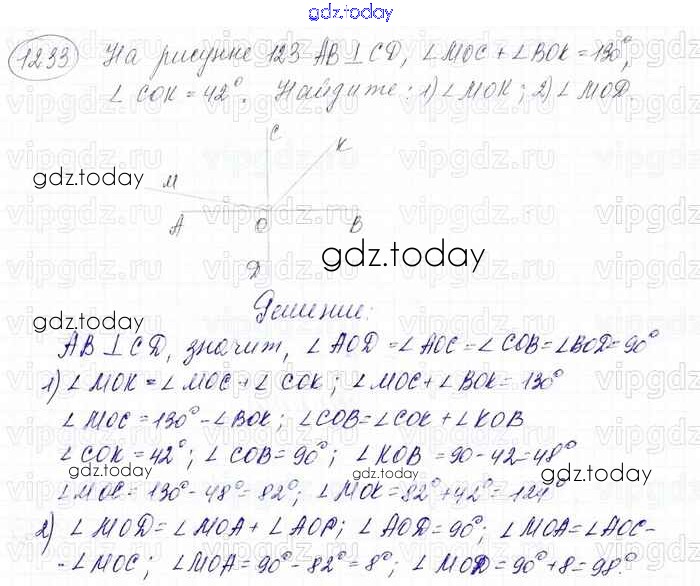 gdz.today
1233 На рисунке 123 AB ⊥ CD, ∠MOC + ∠BOK = 130°,
∠COK = 42°. Найдите: 1) ∠MOK; 2) ∠MOD
C
K
gdz.today
M
A O B
gdz.today
D
Решение:
gdz.today
AB ⊥ CD, значит, ∠AOD = ∠AOC = ∠COB = ∠BOD = 90°
1) ∠MOK = ∠MOC + ∠COK; ∠MOC + ∠BOK = 130°
∠MOC = 130° - ∠BOK; ∠COB = ∠COK + ∠KOB
∠COK = 42°; ∠COB = 90°; ∠KOB = 90 - 42 = 48°
gdz.today
gdz.today
∠MOC = 130° - 48° = 82°; ∠MOK = 82° + 42° = 124°
2) ∠MOD = ∠MOA + ∠AOD; ∠AOD = 90°; ∠MOA = ∠AOC -
- ∠MOC; ∠MOA = 90° - 82° = 8°; ∠MOD = 90° + 8 = 98°.